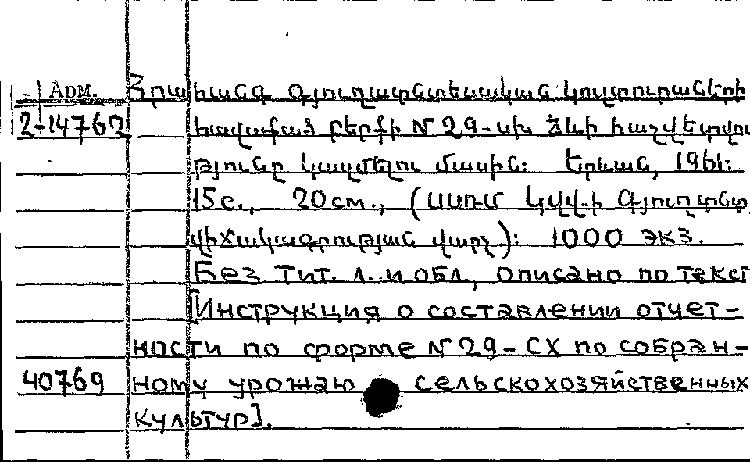 Арм. Հրահանգ գյուղատնտեսական կուլտուրաների
2-14762 հավաքած բերքի №29-սխ ձևի հաշվետվու
թյունը կազմելու մասին: Երևան, 1961:
15с., 20см., (ՍՍՌՄ ԿՎՎ-ի Գյուղատնտ
վիճակագրության վարչ): 1000 экз.
Без тит. л. и обл., описано по текст
[Инструкция о составлении отчет-
ности по форме №29-СХ по собран-
40769 ному урожаю сельскохозяйственных
культур].